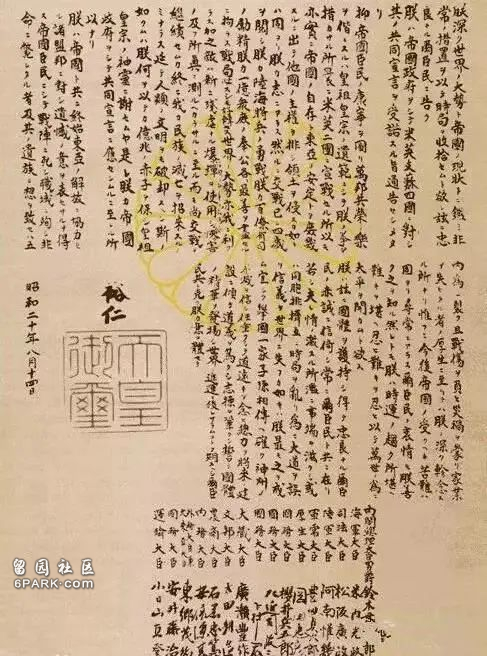 朕深ク世界ノ大勢ト帝國ノ現状トニ鑑ミ非
常ノ措置ヲ以テ時局ヲ收拾セムト欲シ茲ニ忠
良ナル爾臣民ニ告ク
朕ハ帝國政府ヲシテ米英支蘇四國ニ對シ
其ノ共同宣言ヲ受諾スル旨通告セシメタリ
抑帝國臣民ノ康寧ヲ圖リ萬邦共榮ノ樂
ヲ偕ニスルハ皇祖皇宗ノ遺範ニシテ朕ノ拳々
措カサル所曩ニ米英二國ニ宣戰セル所以モ
亦實ニ帝國ノ自存ト東亞ノ安定トヲ庶幾
スルニ出テ他國ノ主權ヲ排シ領土ヲ侵スカ如キ
ハ固ヨリ朕カ志ニアラス然ルニ交戰已ニ四歳
ヲ閲シ朕カ陸海將兵ノ勇戰朕カ百僚有司
ノ勵精朕カ一億衆庶ノ奉公各最善ヲ盡セル
ニ拘ラス戰局必スシモ好轉セス世界ノ大勢亦我ニ利
アラス加之敵ハ新ニ殘虐ナル爆彈ヲ使用シテ慘害
ノ及フ所眞ニ測ルヘカラサルニ至ル而モ尚交戰ヲ
繼續セムカ終ニ我カ民族ノ滅亡ヲ招來スル
ノミナラス延テ人類ノ文明ヲモ破却スヘシ斯
ノ如クムハ朕何ヲ以テカ億兆ノ赤子ヲ保シ皇祖
皇宗ノ神靈ニ謝セムヤ是レ朕カ帝國
政府ヲシテ共同宣言ニ應セシムルニ至レル所
以ナリ
朕ハ帝國ト共ニ終始東亞ノ解放ニ協力セ
ル諸盟邦ニ對シ遺憾ノ意ヲ表セサルヲ得
ス帝國臣民ニシテ戰陣ニ死シ職域ニ殉シ非
命ニ斃レタル者及其ノ遺族ニ想ヲ致セハ五
内爲ニ裂ク且戰傷ヲ負ヒ災禍ヲ蒙リ家業
ヲ失ヒタル者ノ厚生ニ至リテハ朕ノ深ク軫念ス
ル所ナリ惟フニ今後帝國ノ受クヘキ苦難ハ
固ヨリ尋常ニアラス爾臣民ノ衷情モ朕善
ク之ヲ知ル然レトモ朕ハ時運ノ趨ク所堪ヘ
難キヲ堪ヘ忍ヒ難キヲ忍ヒ以テ萬世ノ爲ニ
太平ヲ開カムト欲ス
朕ハ茲ニ國體ヲ護持シ得テ忠良ナル爾臣
民ノ赤誠ニ信倚シ常ニ爾臣民ト共ニ在リ
若シ夫レ情ノ激スル所濫ニ事端ヲ滋クシ或
ハ同胞排擠互ニ時局ヲ亂リ爲ニ大道ヲ誤
リ信義ヲ世界ニ失フカ如キハ朕最モ之ヲ戒
ム宜シク擧國一家子孫相傳ヘ確ク神州
ノ不滅ヲ信シ任重クシテ道遠キヲ念ヒ總力ヲ將來ノ建
設ニ傾ケ道義ヲ篤クシ志操ヲ鞏クシ誓テ國體
ノ精華ヲ發揚シ世界ノ進運ニ後レサラムコトヲ期スヘシ爾臣
民其レ克ク朕カ意ヲ體セヨ
裕仁
天皇御璽
昭和二十年八月十四日
内閣總理大臣男爵鈴木
海軍大臣 米内光政
司法大臣 松阪廣政
陸軍大臣 阿南惟幾
軍需大臣 豊田
厚生大臣 岡田
國務大臣 櫻井兵五郎
國務大臣
國務大臣 下村
大藏大臣 廣瀬豊作
文部大臣 太田耕造
農商大臣 石黒
内務大臣 安倍
外務大臣 東郷
國務大臣 安井藤治
運輸大臣 小日山直登
留园社区
6PARK.com